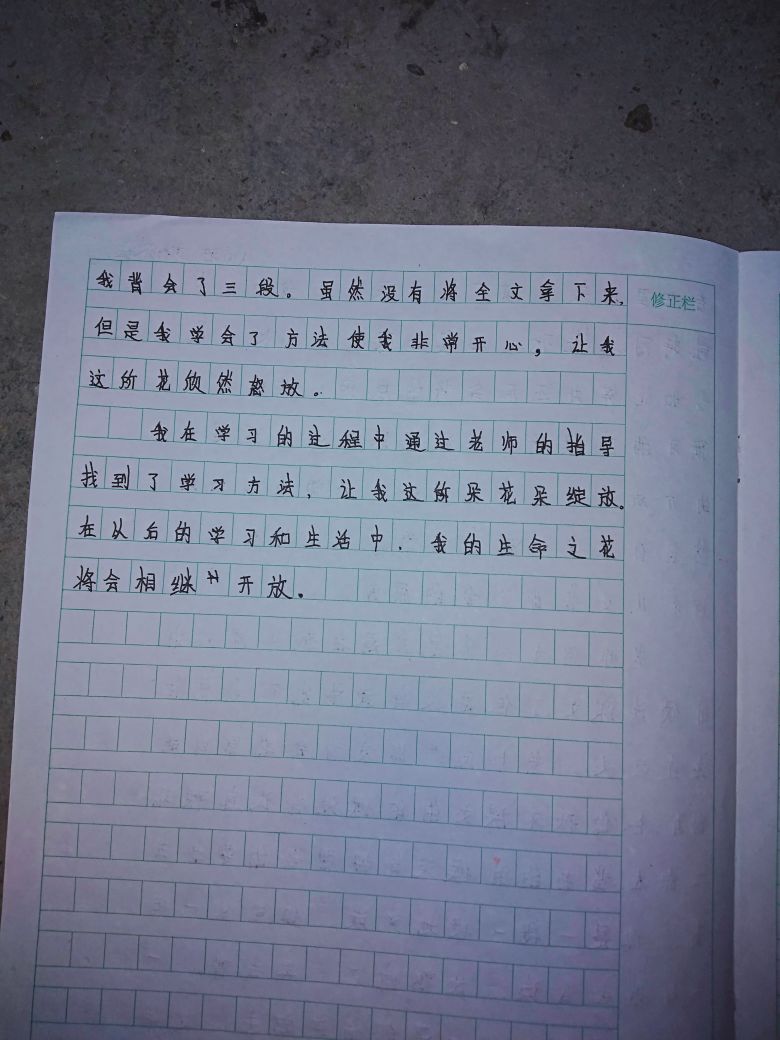 我背会了三段。虽然没有将全文拿下来,
修正栏
但是我学会了方法使我非常开心,让我
这所花欣然怒放。
我在学习的过程中通过老师的指导
找到了学习方法,让我这所朵花朵绽放。
在以后的学习和生活中,我的生命之花
将会相继开放。